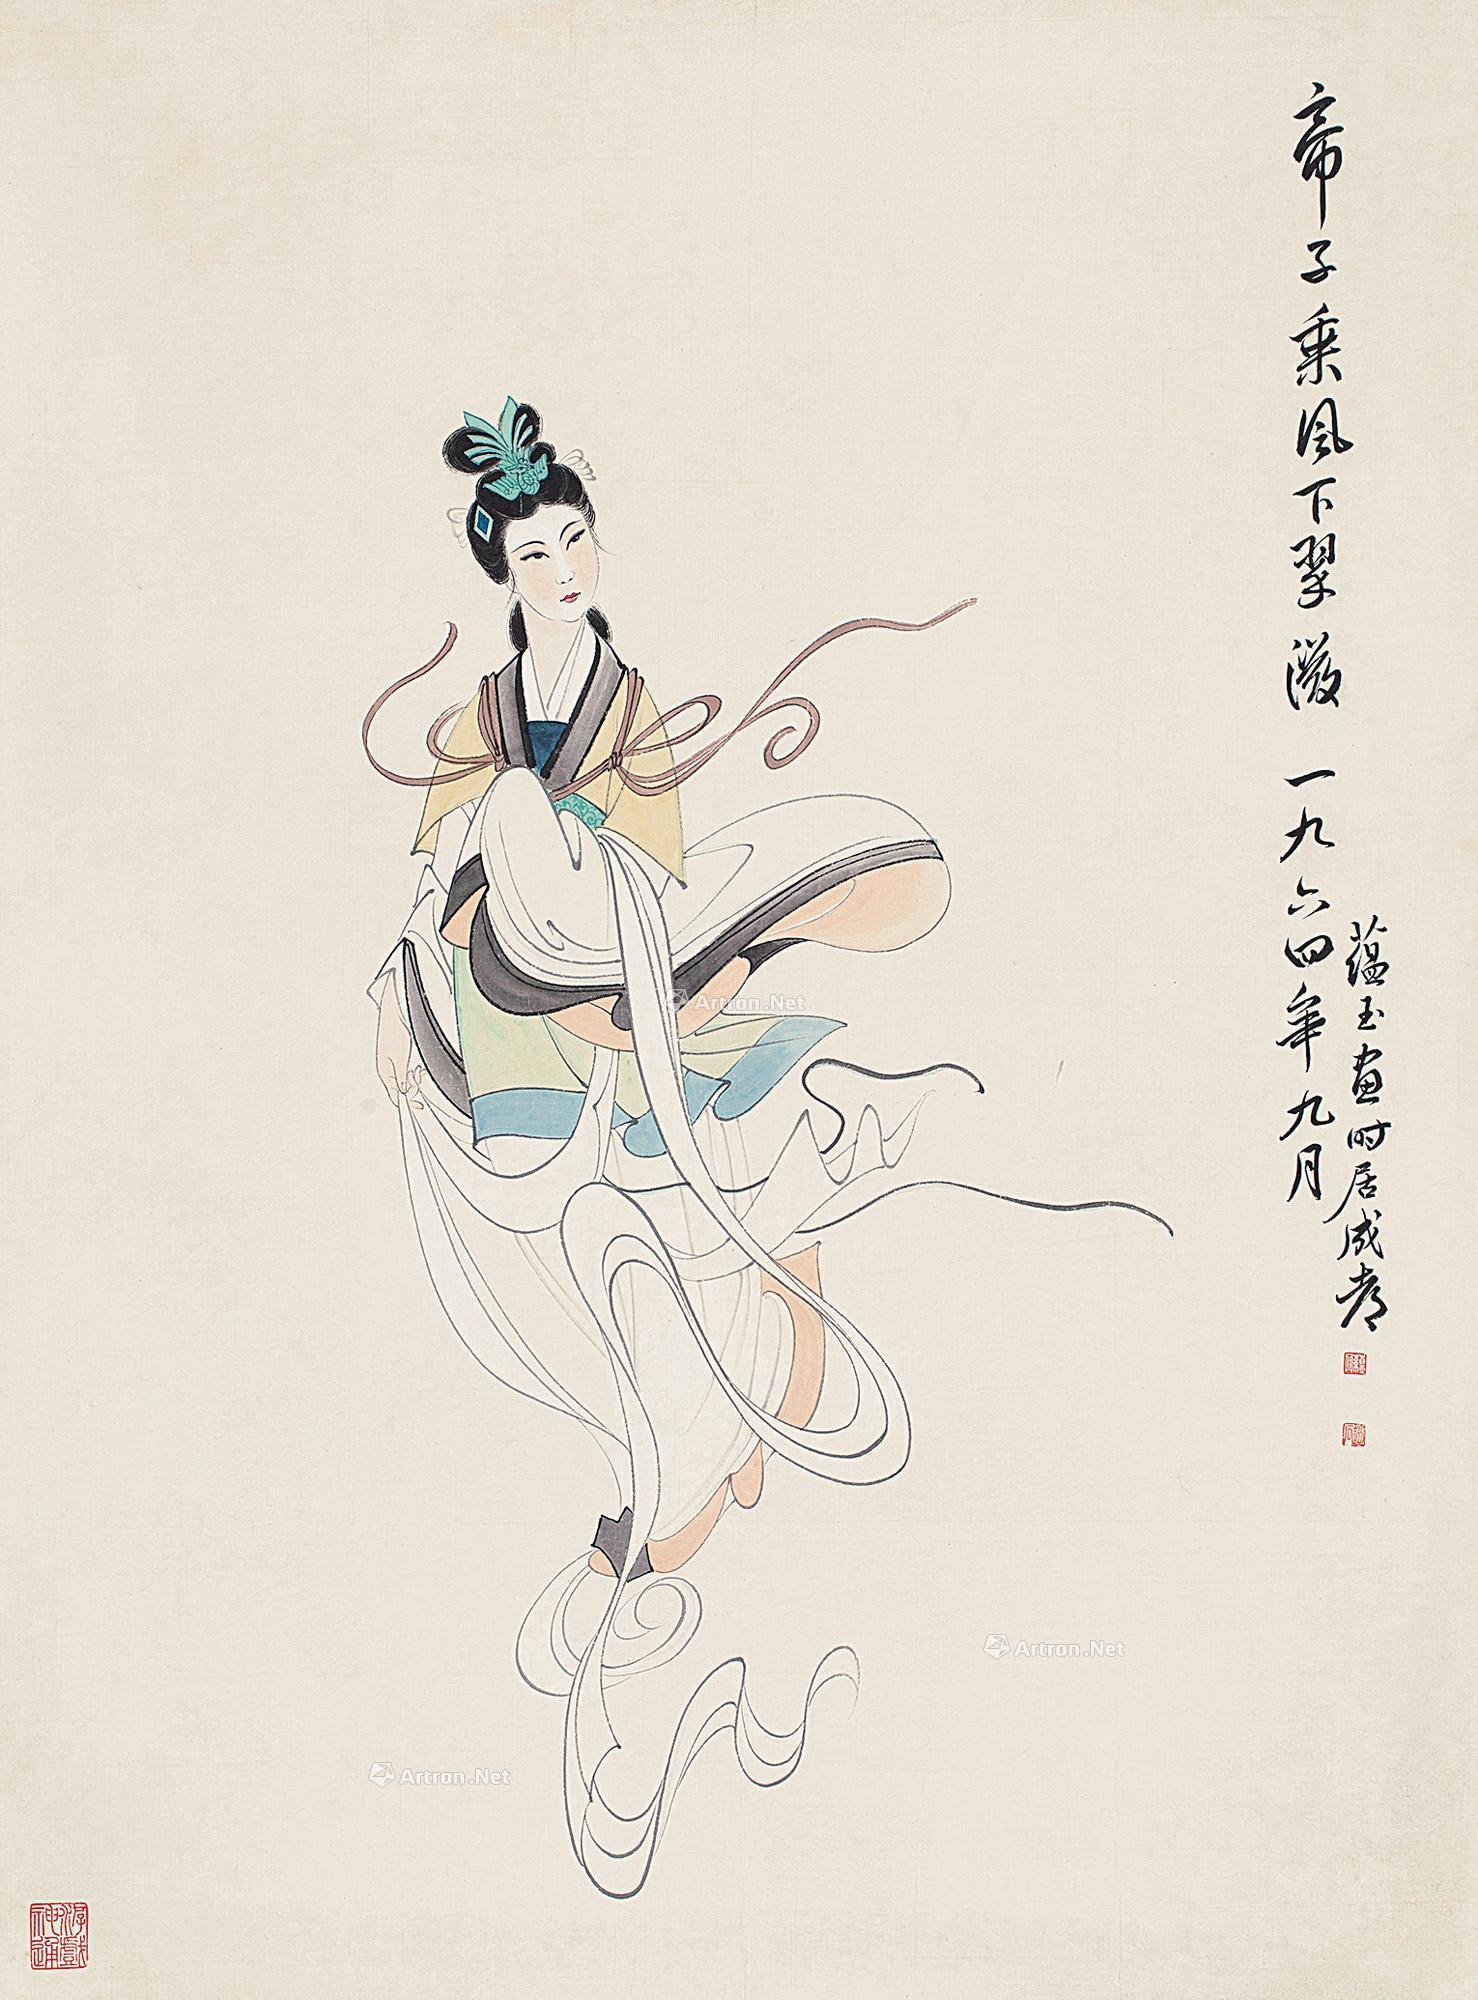 帝子乘风下翠微 一九六四年九月
蕴玉画时居成都
游戏神通
Artron.Net
Artron.Net
Artron.Net
Artron.Net